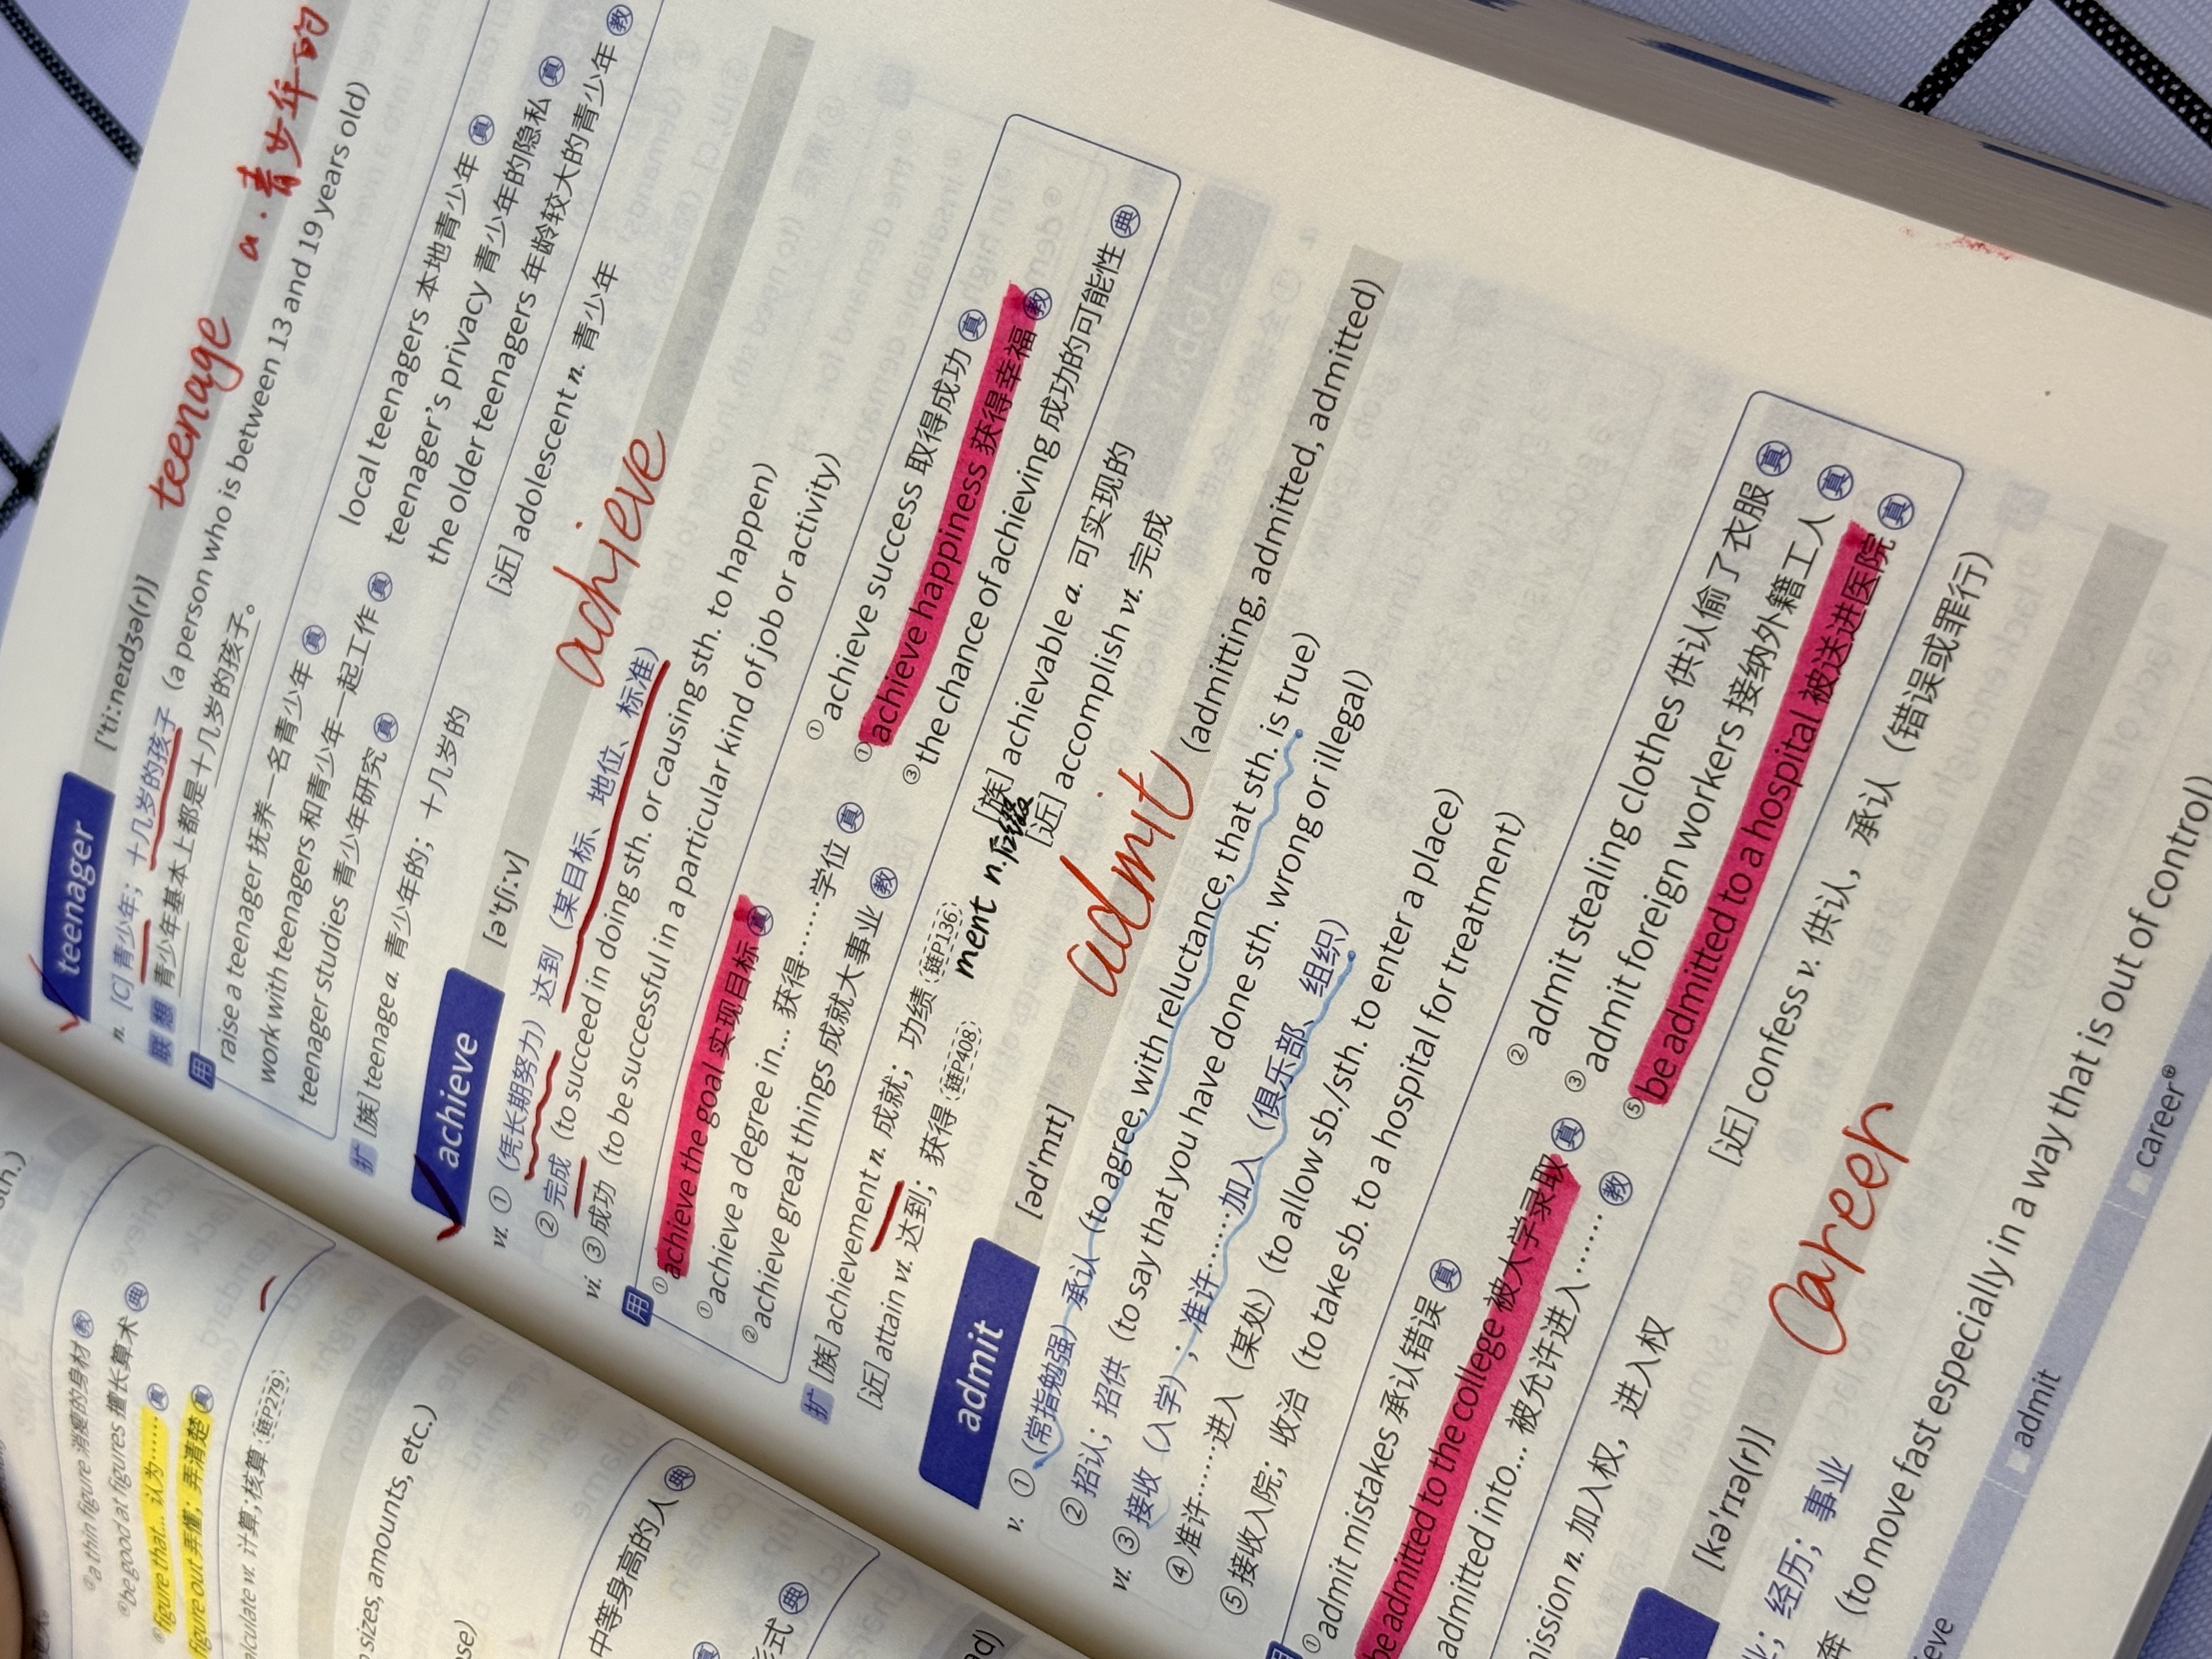 a thin figure 消瘦的身材 教
be good at figures 擅长算术 典
figure that... 认为…… 真
figure out 弄懂；弄清楚 真
计算;核算 (链P279)
sizes, amounts, etc.)
中等身高的人 典
teenager ['tiːneɪdʒə(r)] teenage a. 青少年的
n. [C] 青少年；十几岁的孩子 (a person who is between 13 and 19 years old)
联想 青少年基本上都是十几岁的孩子。
用 raise a teenager 抚养一名青少年 真
local teenagers 本地青少年 真
work with teenagers 和青少年一起工作 真
teenager's privacy 青少年的隐私 真
teenager studies 青少年研究 真
the older teenagers 年龄较大的青少年 教
扩 [族] teenage a. 青少年的；十几岁的
[近] adolescent n. 青少年
achieve [ə'tʃiːv] achieve
vt. ①（凭长期努力）达到（某目标、地位、标准）
②完成 (to succeed in doing sth. or causing sth. to happen)
vi. ③成功 (to be successful in a particular kind of job or activity)
用 ①achieve the goal 实现目标 真
①achieve success 取得成功 真
①achieve a degree in... 获得……学位 真
①achieve happiness 获得幸福 教
②achieve great things 成就大事业 教
③the chance of achieving 成功的可能性 典
扩 [族] achievement n. 成就；功绩 (链P136)
ment n.后缀
[族] achievable a. 可实现的
[近] attain vt. 达到；获得 (链P408)
[近] accomplish vt. 完成
admit [əd'mɪt] admit (admitting, admitted, admitted)
v. ①（常指勉强）承认 (to agree, with reluctance, that sth. is true)
②招认；招供 (to say that you have done sth. wrong or illegal)
vt. ③接收（入学）；准许……加入（俱乐部、组织）
④准许……进入（某处）(to allow sb./sth. to enter a place)
⑤接收入院；收治 (to take sb. to a hospital for treatment)
用 ①admit mistakes 承认错误 真
②admit stealing clothes 供认偷了衣服 真
be admitted to the college 被大学录取 真
③admit foreign workers 接纳外籍工人 真
admitted into... 被允许进入…… 教
⑤be admitted to a hospital 被送进医院 真
mission n. 加入权，进入权
[近] confess v. 供认，承认（错误或罪行）
[kə'rɪə(r)] career
业；经历；事业
奔 (to move fast especially in a way that is out of control)
eve admit career